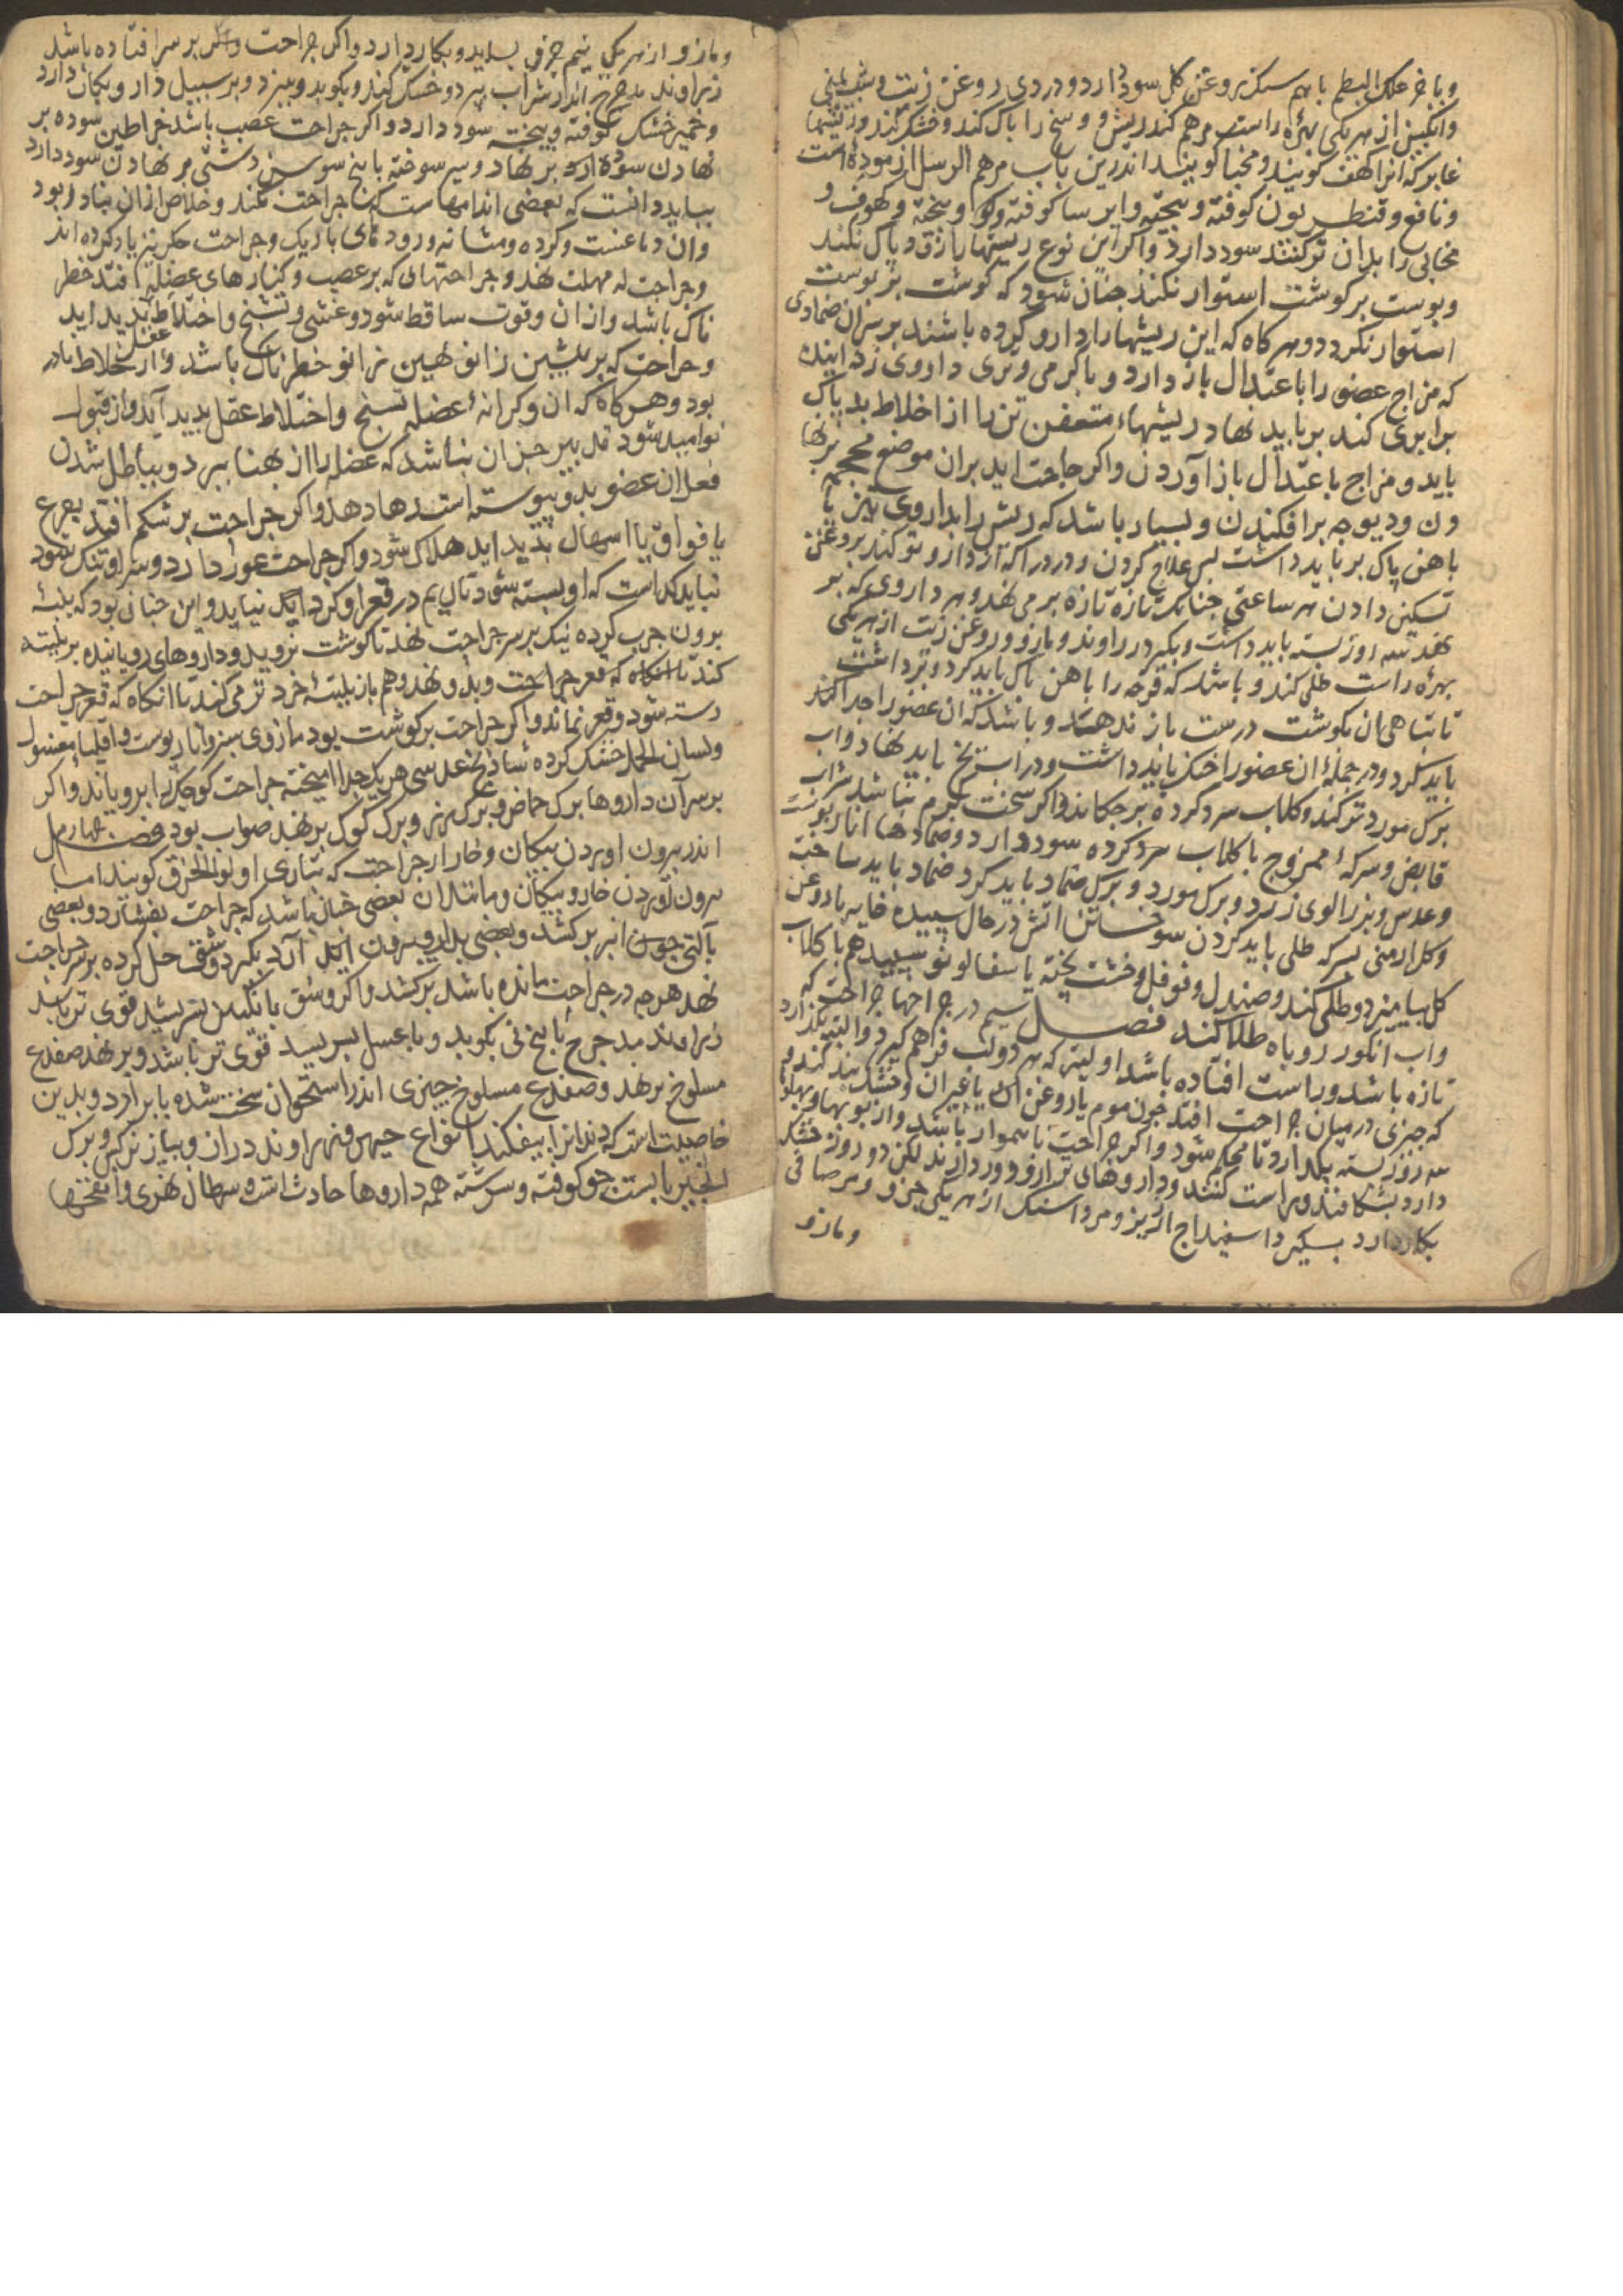 و باخر علک البطم با بهم سکنر بروغن کل سود دارد و دردی روغن زیت و شب یمنی
وانکبین از هر یکی بهره راست مرهم کند ریش و وسخ را باک کند و خشک کند و ریشها
غایر که انرا کهف کویند و مخبا کویند اندرین باب مرهم الرسل ازموده است
و نافع و قنطریون کوفته و بیخته وایرسا کوفته و بیخته و کهوف و
مخابی را بدان تر کنند سود دارد و اکر این نوع ریشها بازق و پاک نکند
و بوست بر کوشت استوار نکند جنان شود که کوشت بر بوست
استوار نکردد و هر کاه که این ریشها را دارو کرده باشند بر سران ضمادی
که مزاج عضو را باعتدال باز دارد و باکرمی و تری داروی زداینده
برابری کند بر باید نهاد ریشهاء متعفن تن را از اخلاط بد پاک
باید و مزاج باعتدال باز آوردن و اکر حاجت اید بران موضع محجمه بر نها
دن و دیوجه برافکندن و بسیار باشد که ریش را بداروی تیز یا
باهن پاک بر باید داشت بس علاج کردن و درد را که از دارو تولد کند بروغن
تسکین دادن هر ساعتی جنانک تازه تازه بر می نهد و هر داروی که بر
نهد سه روز بسته باید داشت و بکیرد زراوند و مازو و روغن زیت از هر یکی
بهره راست طلی کند و باشد که قرحه را باهن پاک باید کرد و برداشت
تا تباهی ان بکوشت درست باز ندهد و باشد که ان عضو را جدا کند
باید کرد و در جمله ان عضو را خنک باید داشت و در اب یخ باید نهاد و اب
برک مورد تر کند و کلاب سرد کرده بر جکاند و اکر سخت کرم نباشد شراب
قابض و سرکه ممزوج با کلاب سرد کرده سود دارد و ضمادها انار بوست
و عدس و بزرالوی زرد و برک مورد و برک ضماد باید کرد ضماد باید ساخت
و کل ارمنی بسرکه طلی باید کردن سوختن اتش در حال سپیده خایه با روغن
کل بیامیزد و طلی کند و صندل و فوفل و خشت پخته یا سفالو نو بسپید هم با کلاب
و اب انکور روباه طلا کند فصل سیم در جراحها جراحت که
تازه باشد و راست افتاده باشد اولیتر که هر دو لب فراهم کیرد و البته نکذارد
که جیزی در میان جراحت افتد جون موم یا روغن ان یا غیر ان و خشک بند کند و
سه روز بسته بکدارد تا محکم شود و اکر جراحت ناهموار باشد و از بوبها و بهلو
دارد بشکافند و راست کنند و داروهای تر ازو دور دارند لکن دو روز خشک
بکار دارد بسکیرد اسفیداج ارزیز و مرداسنک از هر یکی جزو و مر صافی
و مازو
و مازو از هر یکی نیم جزو بساید و بکار دارد و اکر جراحت و اکر بر سر افتاده باشد
زراوند مدحرج اندر شراب بپزد و خشک کند و بکوبد و ببزد و بر سبیل دارو بکار دارد
و خمیر خشک کوفته و بیخته سود دارد و اکر جراحت عصب باشد خراطین سوده بر
نهادن سود دارد بر نهاد و سیر سوخته با بیخ سوسن دشتی بر نهادن سود دارد
بباید دانست که بعضی اندامهاست که جراحت نکند و خلاص ازان نادر بود
وان دماغست و کرده و مشانه و رودهای باریک و جراحت جکر نیز یاد کرده اند
و جراحت له مهلت نهد و جراحتهای که بر عصب و کنارهای عضله افتد خطر
ناک باشد وازان و قوت ساقط شود و غشی و تشنج و اختلاط عقل بدید اید
و جراحت که بر بیشین زانو نهین زانو خطرناک باشد وازو خلاط نادر
بود و هر کاه که ان و کرانه عضله تشنج و اختلاط عقل بدید آید و از قبول
نوامید شود تدبیر جزان نباشد که عضله را از بهنا ببرد و بباطل شدن
فعل ان عضو بدو پیوسته است دها دهد و اکر جراحت بر شکم افتد بعرع
یا فواق یا اسهال بدید اید هلاک شود و اکر جراحت غور دارد و سر او تنک شود
نباید کذاشت که او بسته شود تا ریم در قعر او کرد اید نباید و این جنان بود که بلیته
برون جرب کرده نیک بر سر جراحت نهد تا کوشت نروید و داروهای رویانیده بر بلیته
کند تا انکاه که قعر جراحت و بدو نهد و هم باز بلیته خرد تر می کند تا انکاه که قعر جراحت
رسته شود و قعر نماند و اکر جراحت بر کوشت بود مازوی سبز و انار پوست و اقلیما مغسول
و لسان الحمل خشک کرده شاذنج عدسی هر یک جدا امیخته جراحت کوجک را برویاند و اکر
بر سر آن داروها برک حماض و برک رز و برک کوک بر نهد صواب بود فصل جهارم
اندر بیرون اوردن بیکان و خار از جراحت که بتازی او لوالخرق کویند اما
برون آوردن خار و پیکان و مانند ان بعضی جنان باشد که جراحت بفشارد و بعضی
بآلتی جون انبر بر کشد و بعضی بدارو بیرون اید آن بکیرد وشق حل کرده بر سر جراحت
نهد هر جه در جراحت مانده باشد برکشد و اکر وشق با نکبین بسریشد قوی تر باشد
زراوند مدحرج یا بیخ نی بکوبد و با عسل بسریشد قوی تر باشد و بر نهد ضفدع
مسلوخ بر نهد و ضفدع مسلوخ جیزی اندر استخوان سخت شده یا بر آرد و بدین
خاصیت است که دندانرا بیفکند انواع جیهر و زراوند دران و بیاز نرکس و برک
انجیر با بست جو کوفته و سرشته همه داروها حادث است و سرطان نهری و انفحتها